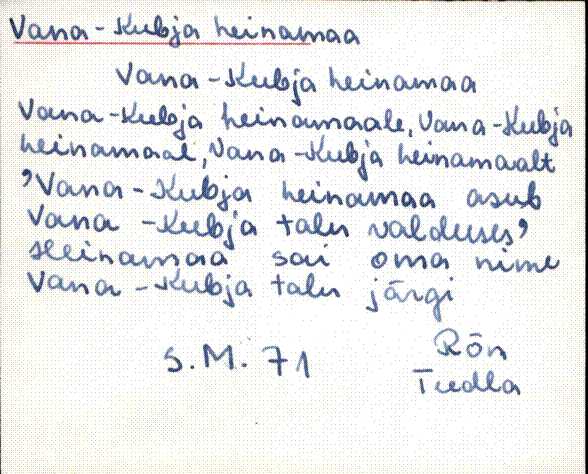 Vana-Kubja heinamaa
Vana-Kubja heinamaa
Vana-Kubja heinamaale, Vana-Kubja
heinamaal, Vana-Kubja heinamaalt
"Vana-Kubja heinamaa asub
Vana-Kubja talu valduses"
Heinamaa sai oma nime
Vana-Kubja talu järgi
S.M. 71 Rõn
Tudla